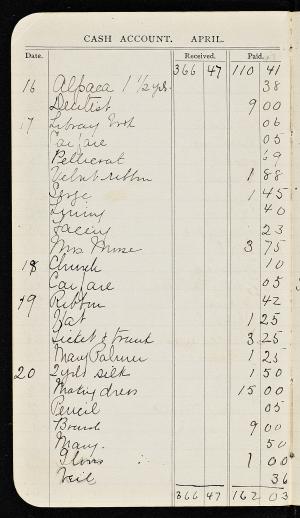 CASH ACCOUNT. APRIL.
Date. Received. Paid.
366 47 110 41
16 Alpaca 1 1/2 yds. 38
Dentist 9 00
17 Library Book 06
Car fare 05
Petticoat 69
Velvet ribbon 1 88
Serge 1 45
Lining 40
Facing 23
Mrs Morse 3 75
18 Church 10
Car fare 05
19 Ribbon 42
Hat 1 25
Ticket & trunk 3 25
Mary Palmer 1 25
20 2 yds silk 1 50
Making dress 15 00
Pencil 05
Board 9 00
Mary. 50
Gloves 1 00
Veil 36
366 47 162 03